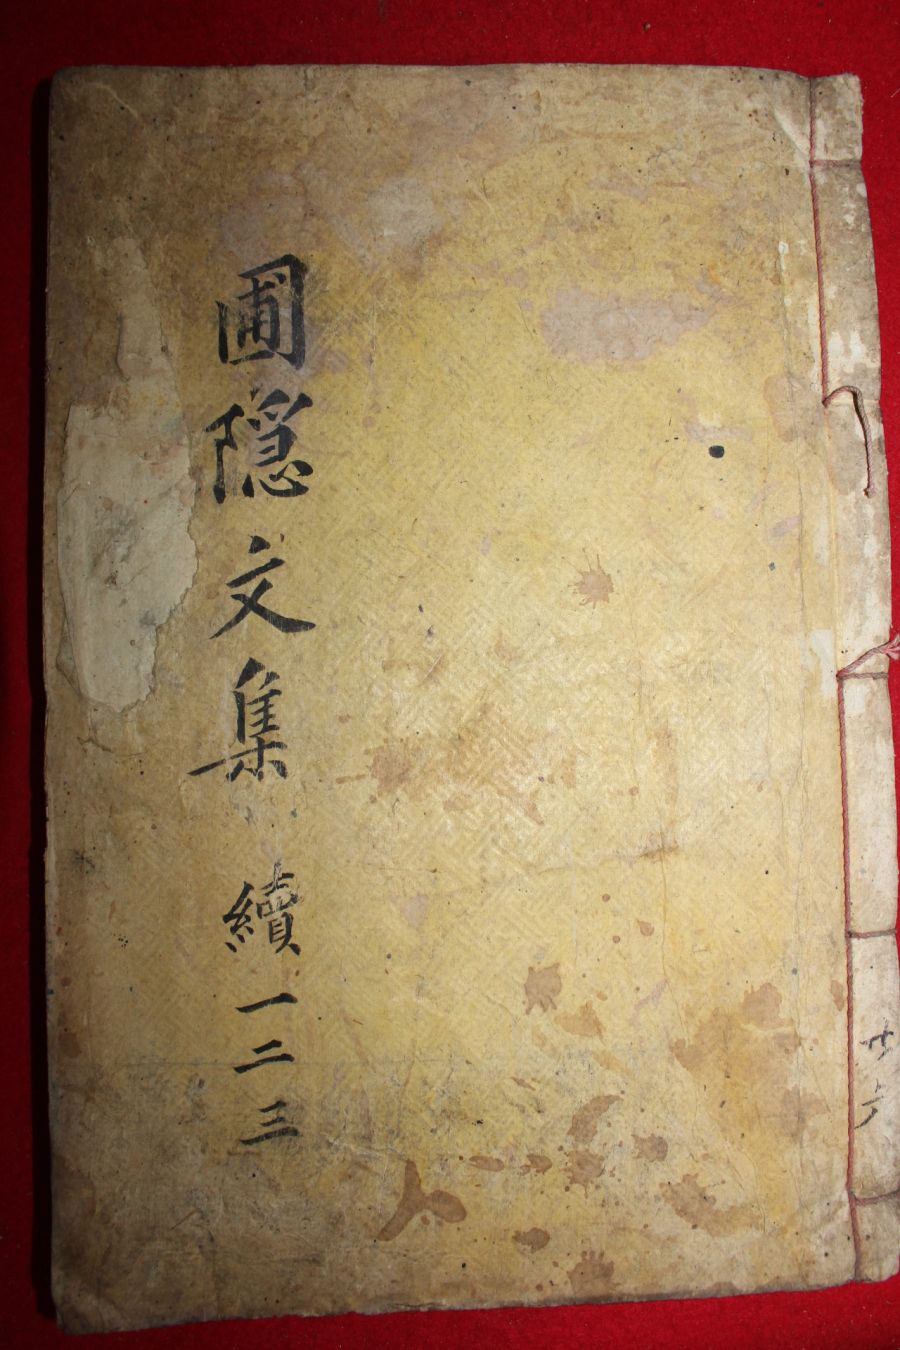 圃隱文集 續一二三